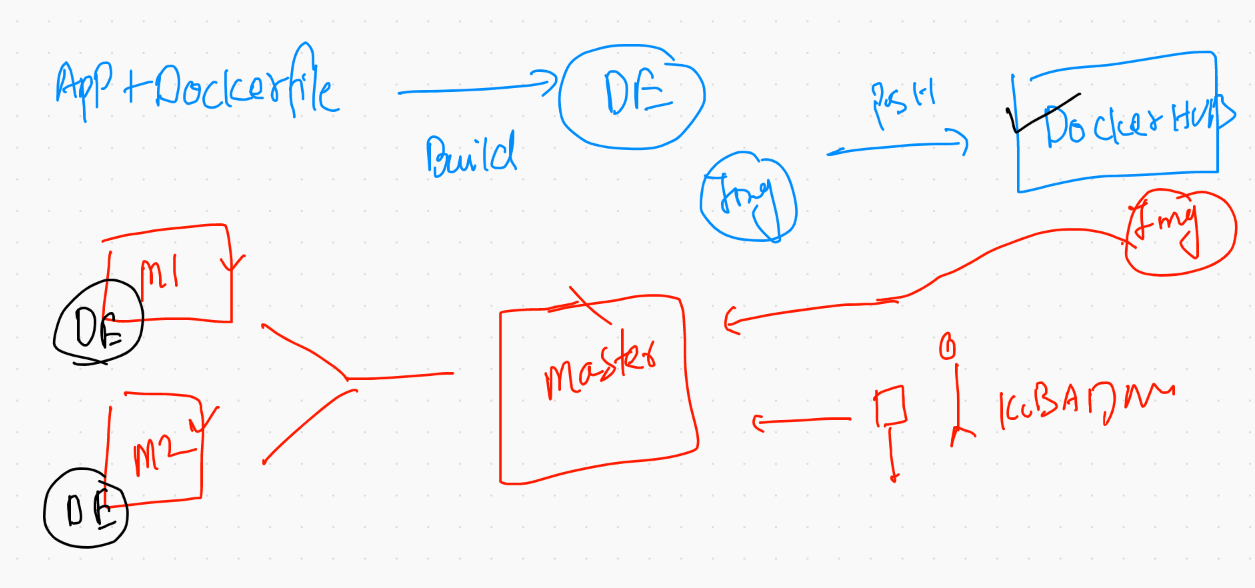 App+Dockerfile
DE
Build
Img
PusH
DockerHub
Img
M1
DE
M2
DE
Master
KUBADM